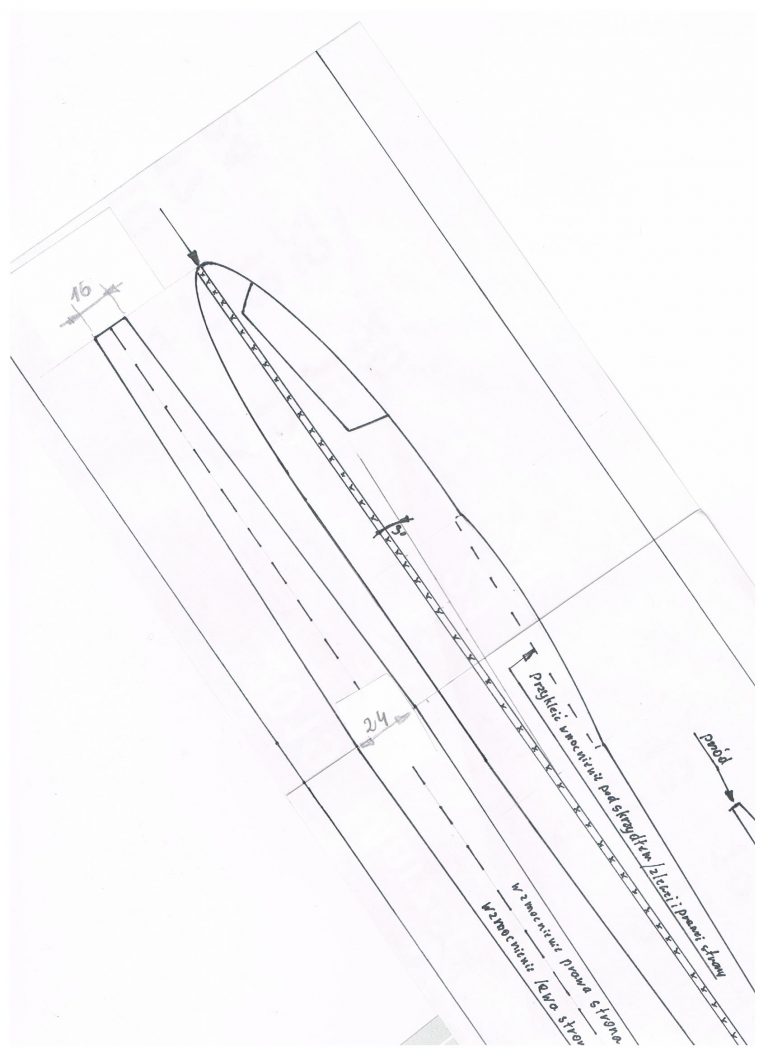 16
24
przód
Przykleić wzmocnienie pod skrzydłem /z lewej i prawej strony
wzmocnienie prawa strona
wzmocnienie lewa stron